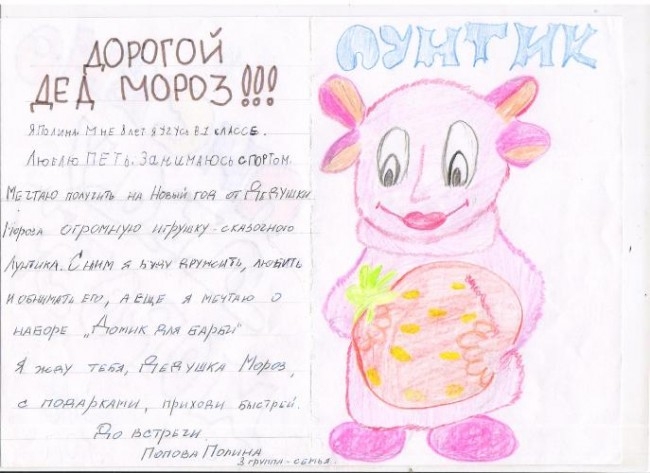 ДОРОГОЙ
ДЕД МОРОЗ!!!
Я ПОЛИНА. МНЕ 8 ЛЕТ Я УЧУСЬ В 1 КЛАССЕ.
ЛЮБЛЮ ПЕТЬ. ЗАНИМАЮСЬ СПОРТОМ.
МЕЧТАЮ ПОЛУЧИТЬ НА НОВЫЙ ГОД ОТ ДЕДУШКИ
МОРОЗА ОГРОМНУЮ ИГРУШКУ-СКАЗОЧНОГО
ЛУНТИКА. С НИМ Я БУДУ ДРУЖИТЬ, ЛЮБИТЬ
И ОБНИМАТЬ ЕГО, А ЕЩЕ Я МЕЧТАЮ О
НАБОРЕ „ДОМИК ДЛЯ БАРБИ"
Я ЖДУ ТЕБЯ, ДЕДУШКА МОРОЗ,
С ПОДАРКАМИ, ПРИХОДИ БЫСТРЕЙ.
ДО ВСТРЕЧИ.
ПОПОВА ПОЛИНА
3 ГРУППА-СЕМЬЯ.
ЛУНТИК